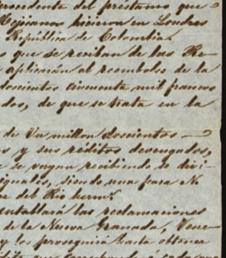 procedente del préstamo que
Mejicanos hicieron en Londres
República de Colombia.
os que se reciban de las Re
aplicarán al reembolso de la
doscientos cincuenta mil francos
dos, de que se trata en la
de Un millon doscientos
os y sus réditos devengados,
que se vayan recibiendo se divi
iguales, siendo una para N
re del Rio herm
entablará las reclamaciones
de la Nueva Granada, Vene
y las perseguirá hasta obtener